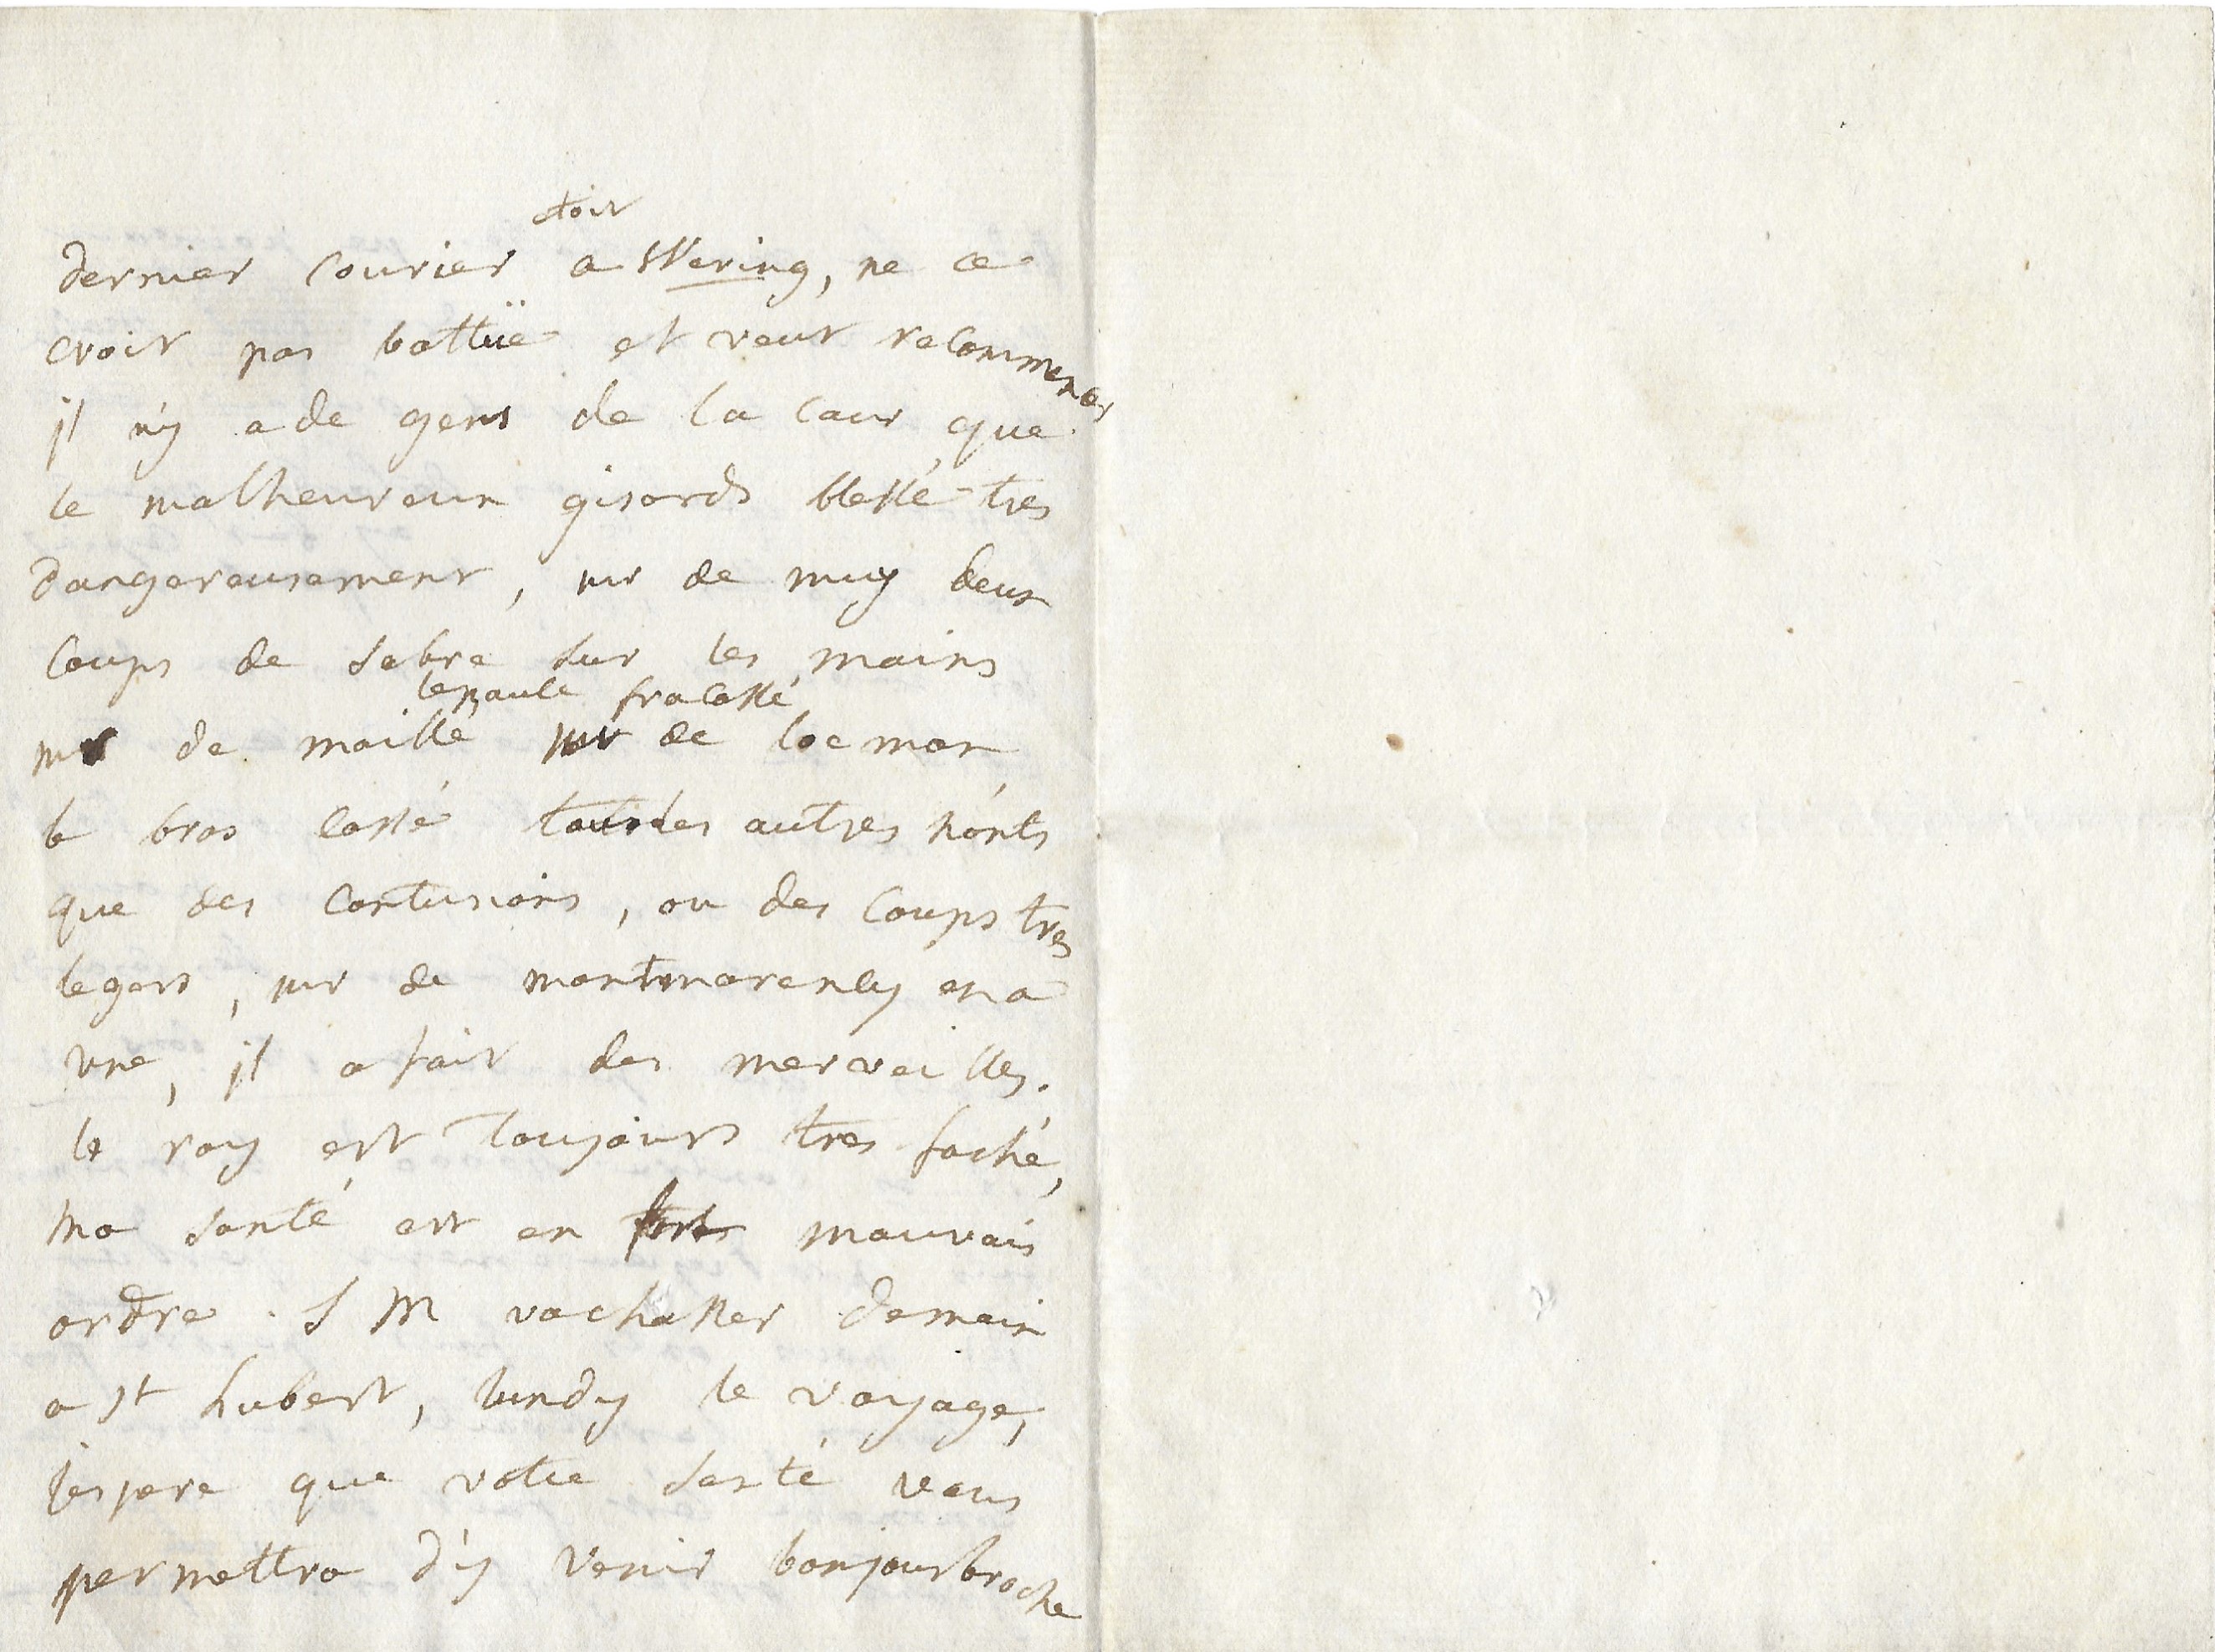 étoit
dernier courier a Wering, ne ce
croit pas battüe et veut recommencer
il n'y a de gens de la cour que
le malheureux gisords blessé tres
dangereusement, mr de muy deux
coups de sabre sur les mains
lepaule fracassé
mr de maillé mr de locmar
le bras cassé tous les autres n'onts
que des contusions, ou des coups tres
legers, mr de montmorency en a
une, il a fait des merveilles.
le roy est toujours tres faché,
ma santé est en mauvais
ordre. S M va chasser demain
a st hubert, lundy le voyage,
jespere que votre santé vous
permettra d'y venir bonjour broche